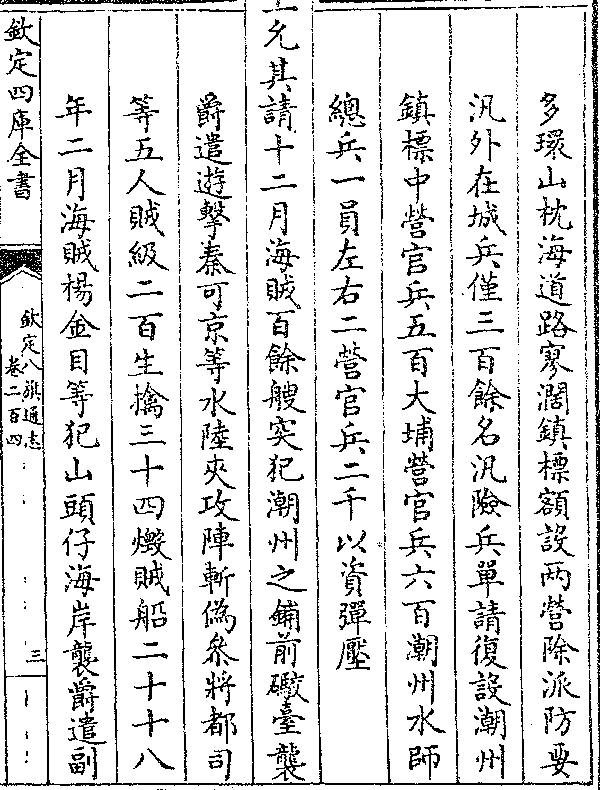 多環山枕海道路寥濶鎮標額設两營除派防要
汛外在城兵僅三百餘名汛險兵單請復設潮州
鎮標中營官兵五百大埔營官兵六百潮州水師
總兵一員左右二營官兵二千以資彈壓
上允其請十二月海賊百餘艘突犯潮州之鋪前礮臺襲
爵遣遊擊秦可京等水陸夾攻陣斬偽叅將都司
等五人賊級二百生擒三十四燬賊船二十十八
年二月海賊楊金目等犯山頭仔海岸襲爵遣副
欽定四庫全書
欽定八旗通志
卷二百四
三